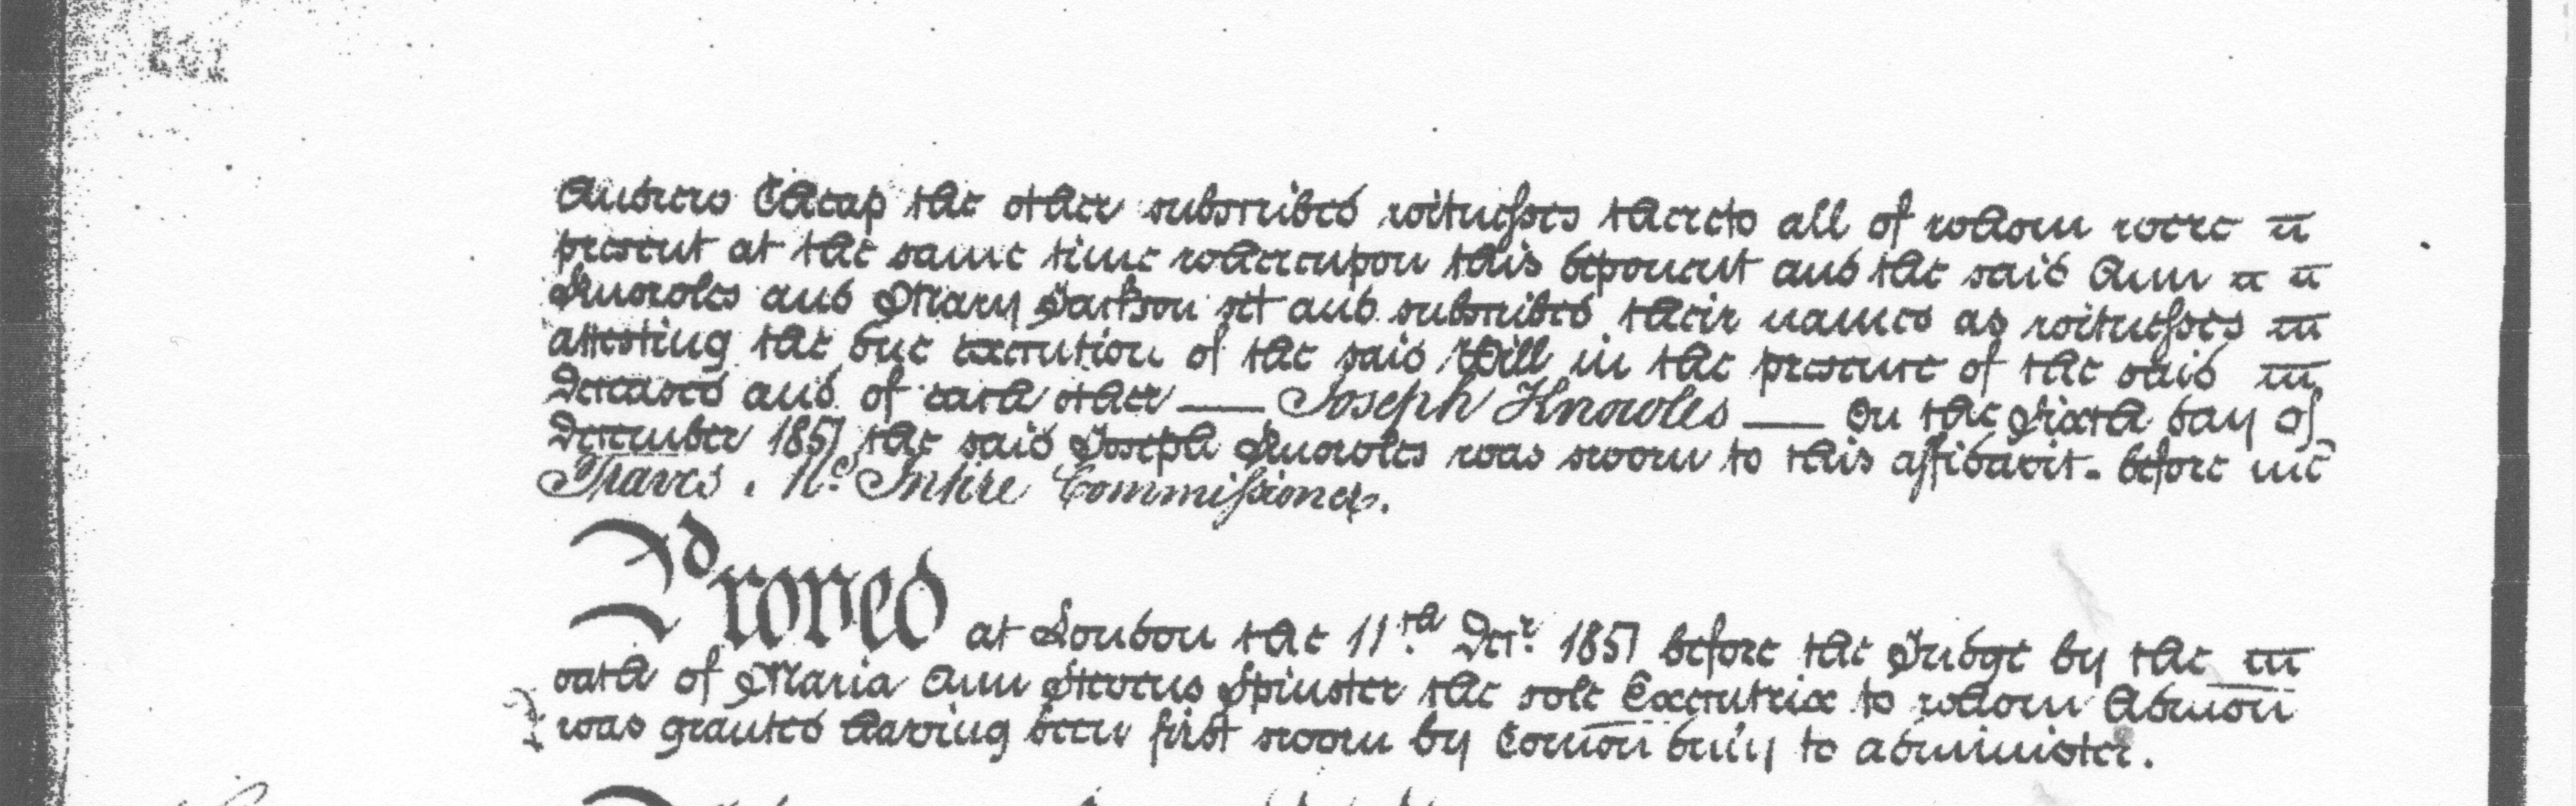 Andrew Cheap the other subscribed witnesses thereto all of whom were
present at the same time whereupon this deponent and the said Ann
Knowles and Mary Jackson set and subscribed their names as witnesses
attesting the due execution of the said Will in the presence of the said
Deceased and of each other — Joseph Knowles — On the Sixth day of
December 1851 the said Joseph Knowles was sworn to this affidavit - before me
Travis. Mc Intire Commissioner.
Proved at London the 11th Decr. 1851 before the Judge by the
oath of Maria Ann Stevens Spinster the sole Executrix to whom Admon
was granted having been first sworn by Comon duly to administer.